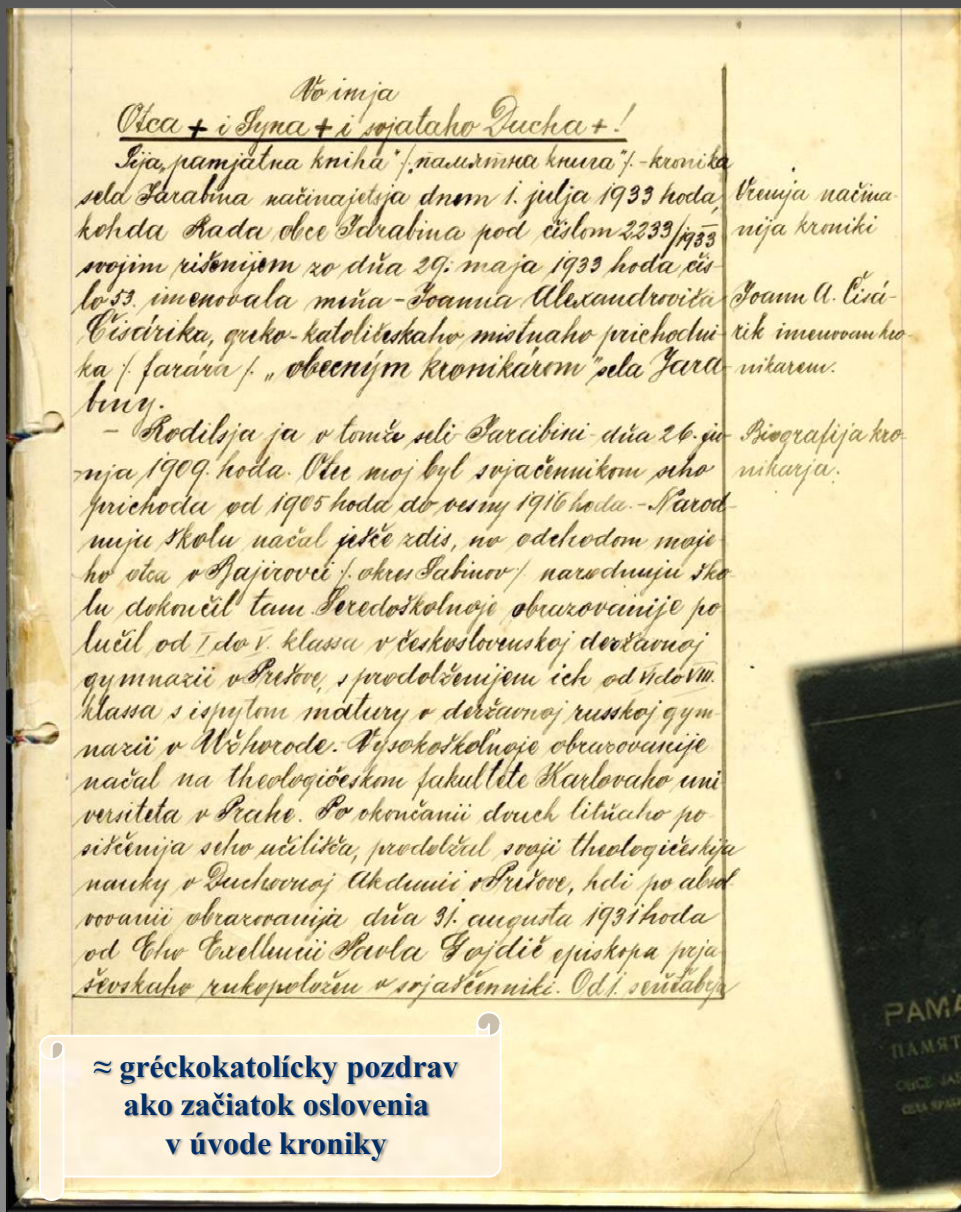 Vo imja
Otca + i Syna + i svjataho Ducha + !
Sija „pamjatna kniha" /: „памятна книга" /: - kronika
sela Jarabina načinajetsja dnem 1. julja 1933 hoda,
kohda Rada obce Jarabina pod čislom 2233/1933
svojim rišenijem zo dňa 29. maja 1933 hoda čis-
lo 53. imenovala miňa - Joanna Alexandroviča
Čisárika, greko-katoličeskaho mistnaho prichodni-
ka /: farára /: „obecným kronikárom" sela Jara-
biny.
- Rodilsja ja v tomže seli Jarabini dňa 26. ju-
nja 1909. hoda. Otec moj byl svjaščennikom seho
prichoda od 1905 hoda do vesny 1916 hoda. - Narod-
nuju školu načal ješče zdis, no odchodom moje-
ho otca v Bajirovci /: okres Sabinov /: narodnuju ško-
lu dokončil tam. Seredoškolnoje obrazovanije po
lučil od I do V. klassa v československoj deržavnoj
gymnazii v Prešove, s prodolženijem ich od VI do VIII.
klassa s ispytom matury v deržavnoj russkoj gym-
nazii v Užhorode. - Vysokoškoľnoje obrazovanije
načal na theologičeskom fakultete Karlovaho uni
versiteta v Prahe. Po okončanii dvuch litňaho po-
siščenija seho učilišča, prodolžal svoji theologičeskija
nauky v Duchovnoj Akademii v Prešove, hdi po absol-
vovanii obrazovanija dňa 31. augusta 1931 hoda
od Eho Exellencii Pavla Gojdič episkopa prja
ševskaho rukopoložen v svjaščenniki. Od 1. senťabrja
Vremja načina-
nija kroniki
Joann A. Čisá-
rik imenovan kro-
nikarem.
Biografija kro-
nikarja.
≈ gréckokatolícky pozdrav
ako začiatok oslovenia
v úvode kroniky
PAMÄ
ПАМЯТ
OBCE JAR